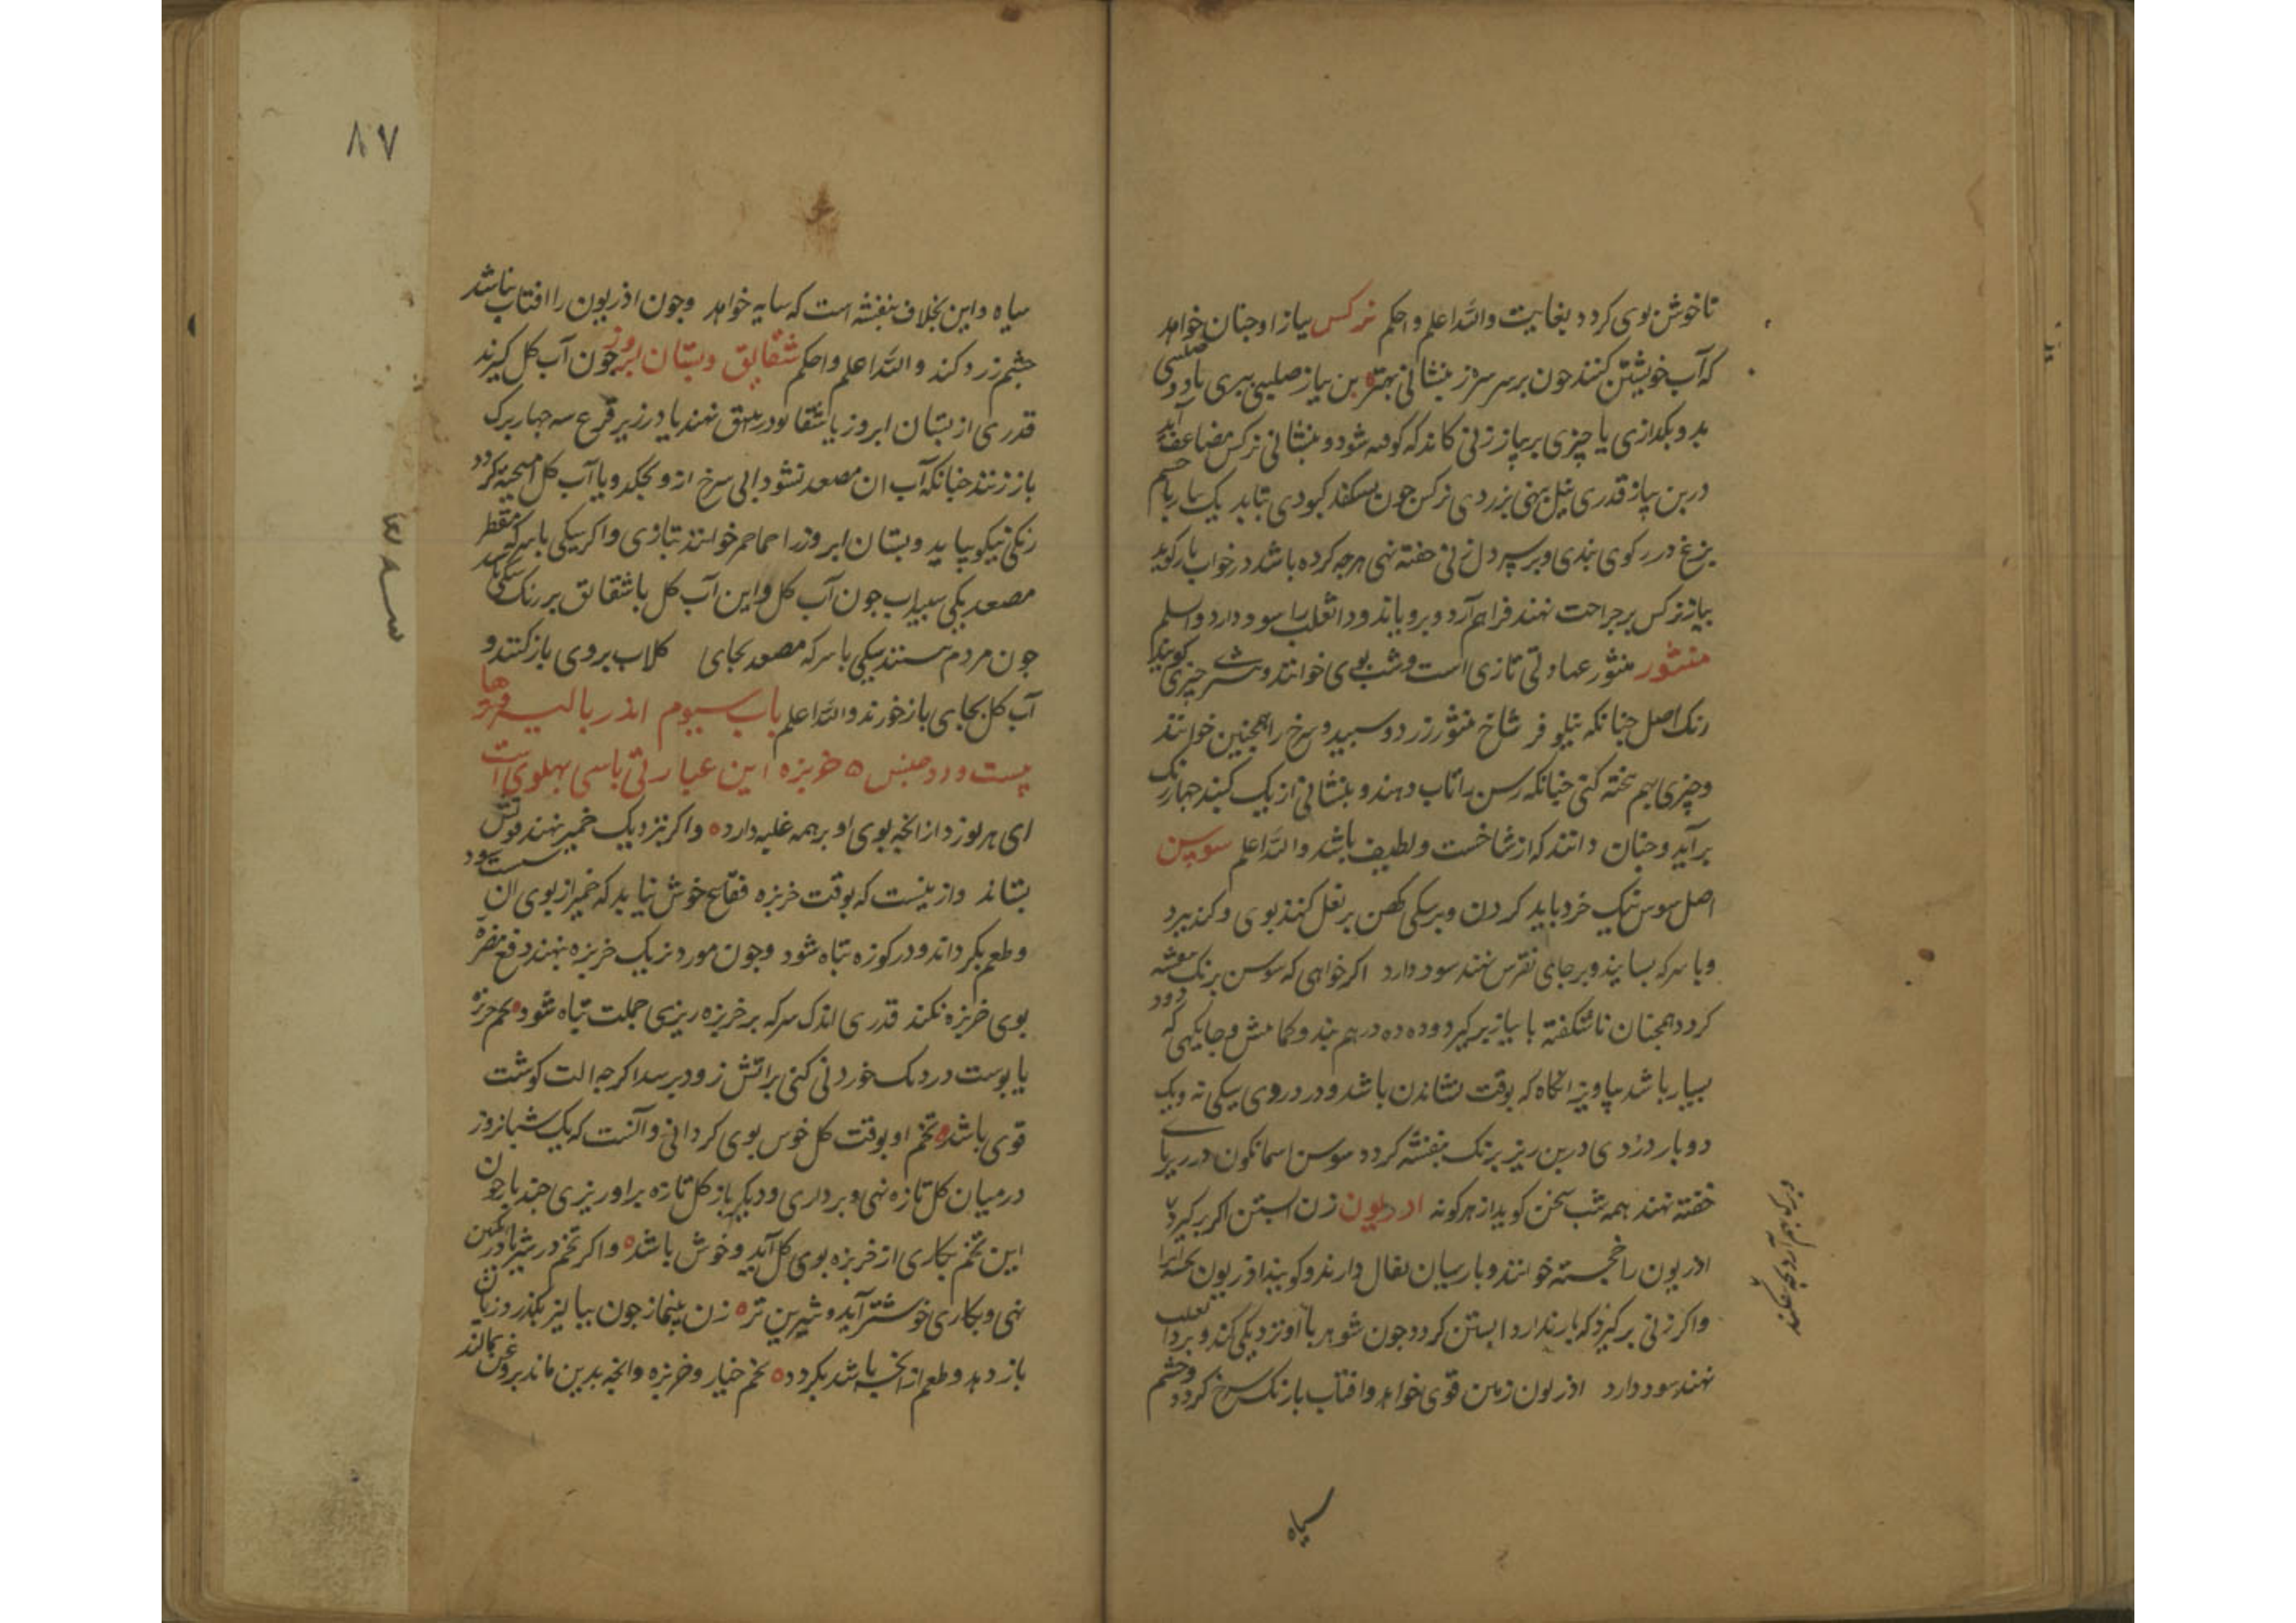 تا خوش بوی کردد بغایت والله اعلم واحکم نرکس پیاز او جنان خواهد
که آب خویشتن کنند جون بر سر سره ز بنشانی بهتره بن پیاز صلیبی ببری یا دو صلیبی
بدو بکدازی یا چیزی بر پیاز زنی کاندکه کوفته شود و بنشانی نرکس مضاعف آید
در بن پیاز قدری نیل نهی بزردی نرکس جون بسکفد کبودی بتابد یک پیاز با جسم
بزغ در رکوی بندی و بر سر دل زنی خفته نهی هرجه کرده باشد در خواب باز کوید
پیاز نرکس بر جراحت نهند فراهم آرد و برویاند و داء الثعلب را سود دارد واسلم
منثور منثور عبارتی تازی است و شب بوی خوانند و هر چیزی کویندا
رنک اصل جنانکه نیلوفر شاخ منثور زرد و سپید و سرخ را همچنین خوانند
و چیزی بهم تخته کنی جنانکه رسن را تاب دهند و بنشانی از یک کنبد جهار رنک
برآید و جنان دانند که از شاخست و لطیف باشد والله اعلم سوسن
اصل سوسن نیک خرد باید کردن و بر سکی کهن بر بغل کنند بوی و کند ببرد
و با سرکه بسایند و بر جای نقرس نهند سود دارد اکر خواهی که سوسن برنک بنفشه
کردد همجنان ناشکفته با پیاز برکیرد و ده ده درهم بند و کمابیش و جایکهی که دود
بسیار باشد بیاویز انکاه که بوقت نشاندن باشد و در دردوی سکی نه و یک
دو بار دردی در بن ریز برنک بنفشه کردد سوسن اسمانکون در زیر پای
خفته نهند همه شب سخن کوید از هر کونه اذریون زن ابستن اکر برکیرد
اذریون را خجسته خوانند و پارسیان بفال دارند و کویند اذریون
واکر زنی برکیرد که بار ندارد ابستن کردد جون شوهر با او نزدیکی کند و بر داء ثعلب
نهند سود دارد اذریون زمین قوی خواهد و افتاب با رنک سرخ کردد و چشم
سیاه
۸۷
سیاه و این بخلاف بنفشه است که سایه خواهد وجون اذریون را افتاب نباشد
چشم زرد کند والله اعلم واحکم شقایق وبستان ابروز جون آب کل کیرند
قدری از بستان ابروز یا شقایق در انبیق نهند یا در زیر قرع سه جهار برک
باز زنند جنانکه آب ان مصعد نشود ابی سرخ از و بجکد و با آب کل امیخته کردد
رنکی نیکو بیاید و بستان ابروز را حماحم خوانند بتازی واکر سیکی با سرکه مقطر
مصعد یکی سپیداب جون آب کل واین آب کل با شقایق بر رنک سیکی
جون مردم مستند سیکی با سرکه مصعد بجای کلاب بروی باز کنند و
آب کل بجای باز خورند والله اعلم باب سیوم اندر بالیز و ترها
بیست و دو جنس ٥ خربزه این عبارتی باسی بهلوی است
ای هر بوز دار انجه بوی او بر همه غلبه دارد ٥ واکر نزدیک خمیر نهند قوتش
بستاند وازینست که بوقت خربزه فقاع خوش نیاید که خمیر از بوی ان سست شود
و طعم بکرداند و در کوزه تباه شود وجون مورد نزدیک خربزه بنهند دفع مضرة
بوی خربزه بکند قدری اندک سرکه بر خربزه ریزی جملت تباه شود ٥ تخم خربزه
یا بوست در دیک خوردنی کنی بر اتش زود برسد اکرجه الت کوشت
قوی باشد ٥ تخم او بوقت کل خوش بوی کردانی و آنست که یک شبانروز
در میان کل تازه نهی و برداری و دیکر باز کل تازه براو ریزی جند بار جون
این تخم بکاری از خربزه بوی کل آید و خوش باشد ٥ واکر تخم در شیر یا در انکبین
نهی و بکاری خوشتر آید و شیرین تر ٥ زن بینماز جون ببالیز بکذرد زیان
باز دهد و طعم از انجه باشد بکردد ٥ تخم خیار و خربزه وانجه بدین ماند بروغن بمالند